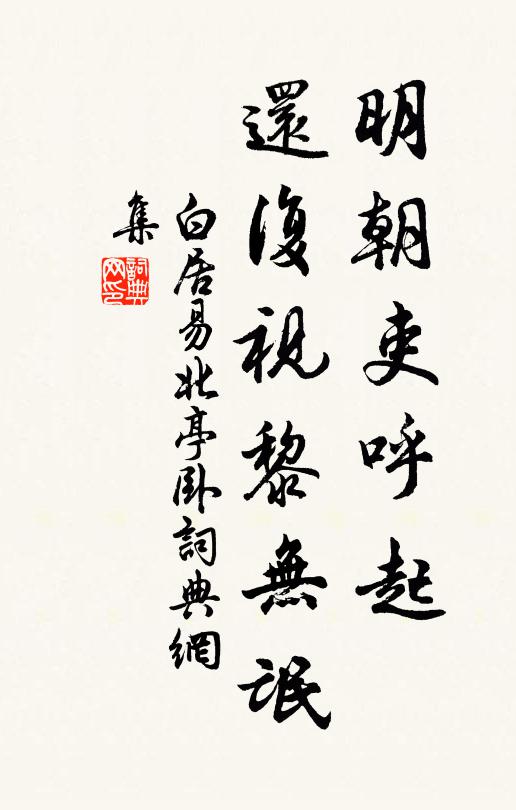 明朝吏呼起
還復視黎無氓
白居易北亭卧詞典網
集
詞典
网印